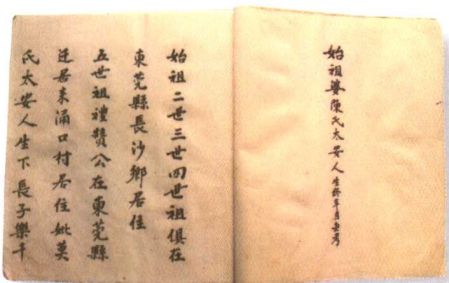 始祖婆陳氏太安人生終年月無考
始祖二世三世四世祖俱在
東莞縣長沙鄉居住
五世祖禮贊公在東莞縣
迁居來涌口村居住妣莫
氏太安人生下長子樂千